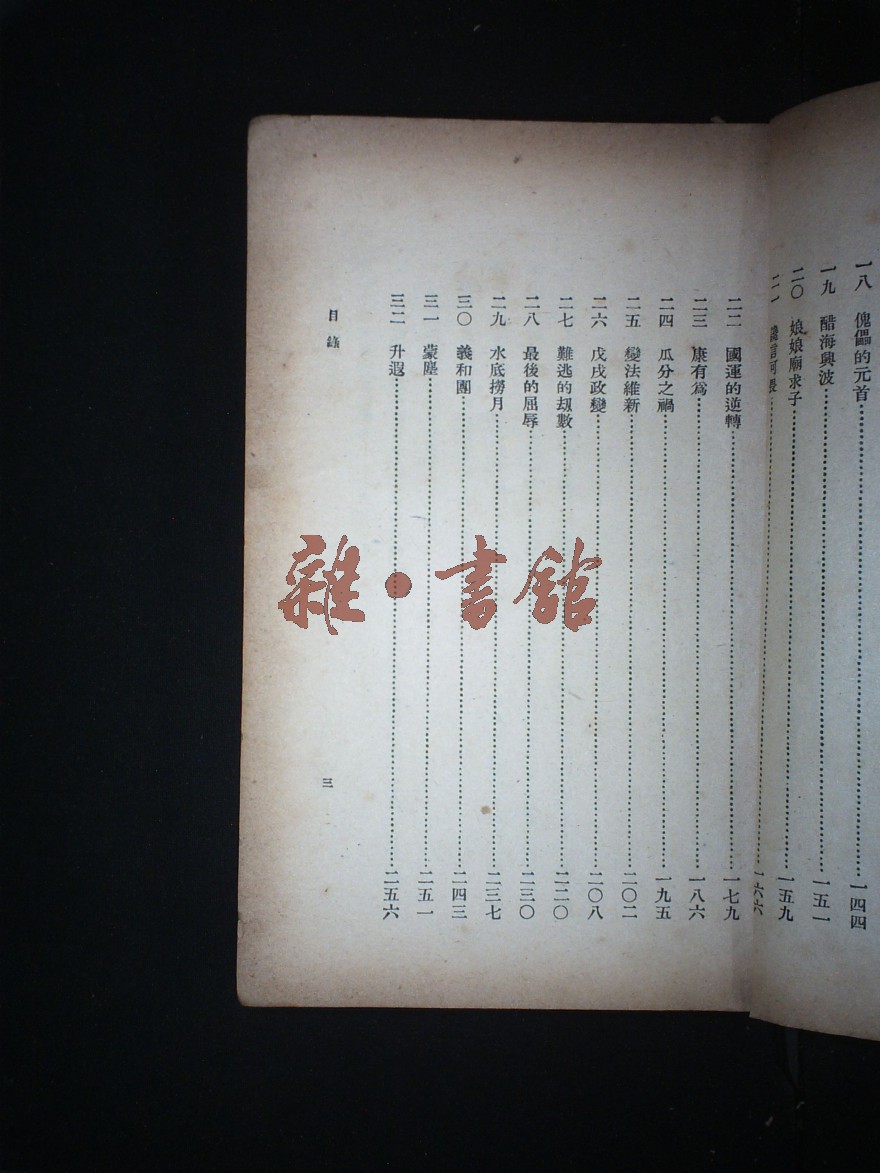 一八　傀儡的元首……一四四
一九　醋海興波……一五一
二〇　娘娘廟求子……一五九
二一　讒言可畏……一六六
二二　國運的逆轉……一七九
二三　康有爲……一八六
二四　瓜分之禍……一九五
二五　變法維新……二〇二
二六　戊戌政變……二〇八
二七　難逃的刼數……二二〇
二八　最後的屈辱……二三〇
二九　水底撈月……二三七
三〇　義和團……二四三
三一　蒙塵……二五一
三二　升遐……二五六
目錄
三
雜・書館